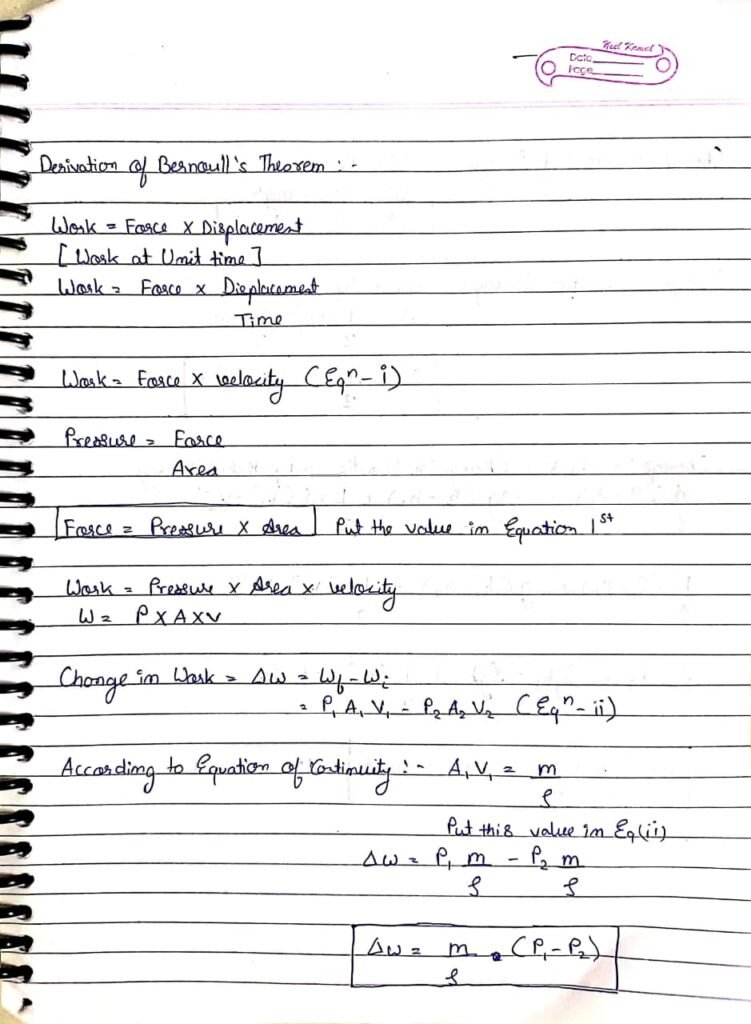 Neel Kamal
Date
Page
Derivation of Bernoull's Theorem :-
Work = Force X Displacement
[ Work at Unit time ]
Work = Force x Displacement
Time
Work = Force X velocity (Eqⁿ- i)
Pressure = Force
Area
Force = Pressure X Area Put the value in Equation 1st
Work = Pressure x Area x velocity
W = P X A X V
Change in Work = ΔW = Wf - Wi
= P₁ A₁ V₁ - P₂ A₂ V₂ (Eqⁿ- ii)
According to Equation of Continuity :- A₁ V₁ = m
ρ
Put this value in Eq(ii)
ΔW = P₁ m - P₂ m
ρ ρ
ΔW = m . (P₁ - P₂)
ρ